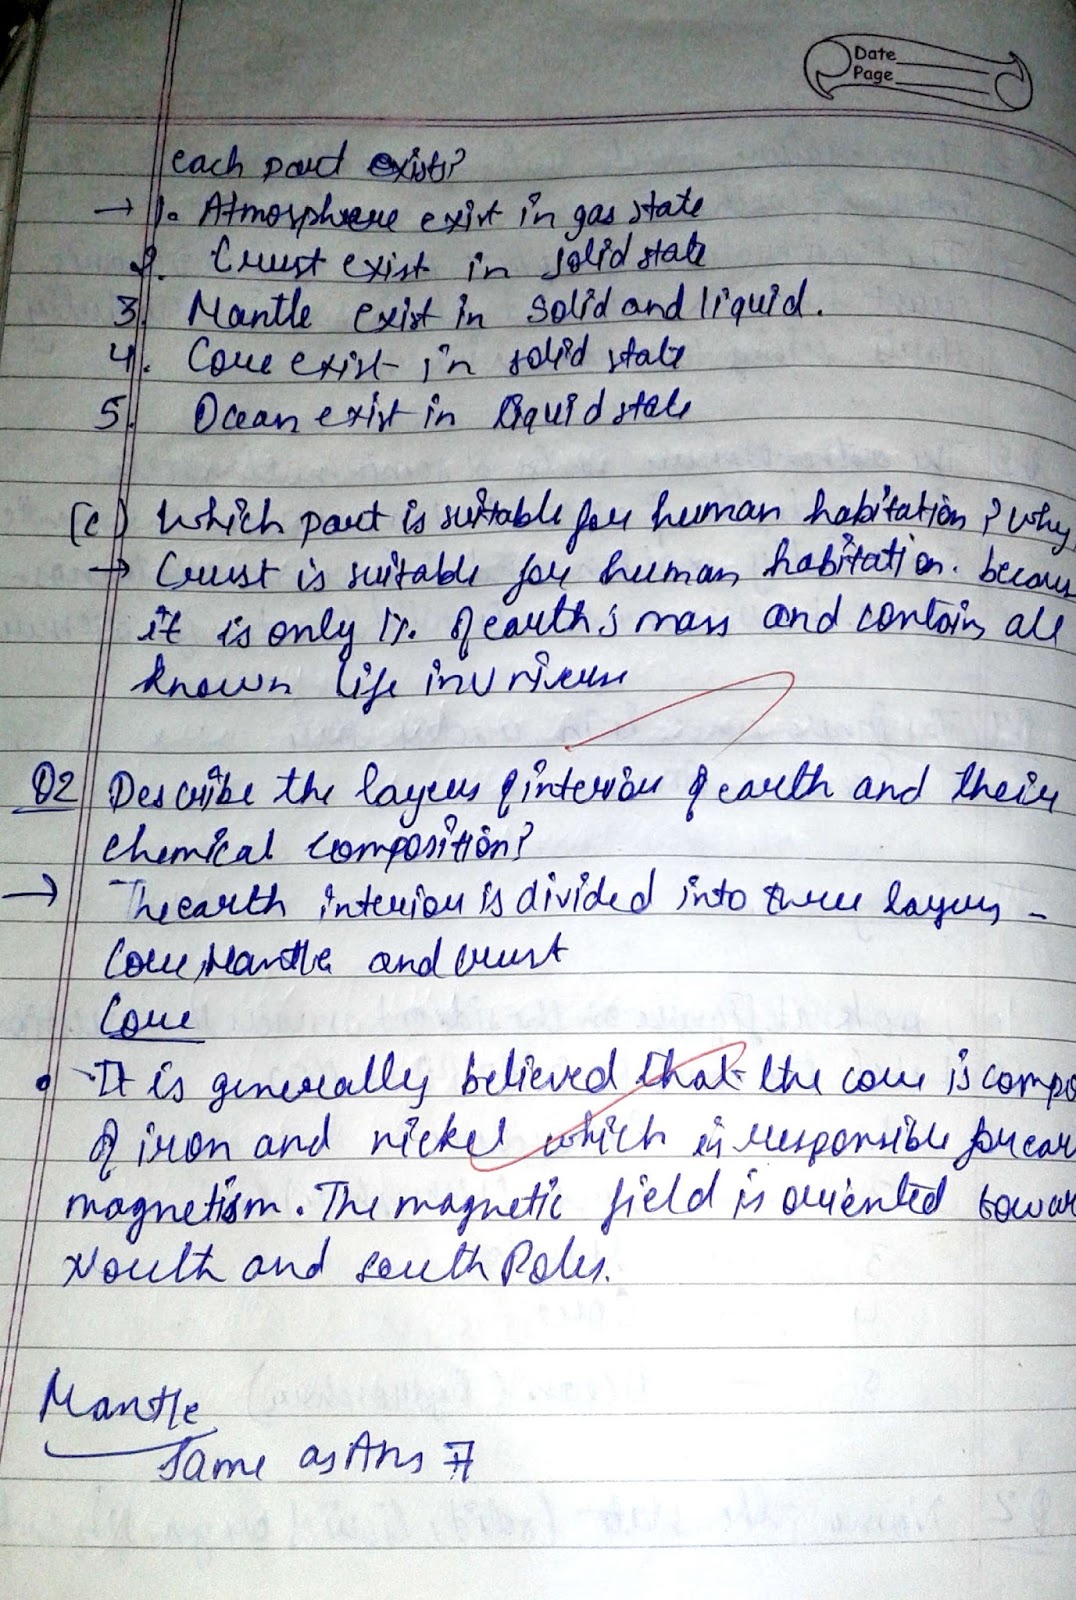 Date
Page
each part exists?
→ 1. Atmosphere exist in gas state
2. Crust exist in solid state
3. Mantle exist in solid and liquid.
4. Core exist in solid state
5. Ocean exist in liquid state
(c) Which part is suitable for human habitation? Why
→ Crust is suitable for human habitation. becaus
it is only 1%. of earth's mass and contain all
known life in universe
Q2 Describe the layers of interior of earth and their
chemical composition?
→ The earth interior is divided into three layers -
Core, Mantle and crust
Core
• It is generally believed that the core is compo
of iron and nickel which is responsible for ear
magnetism. The magnetic field is oriented towar
North and south Poles.
Mantle
Same as Ans 7